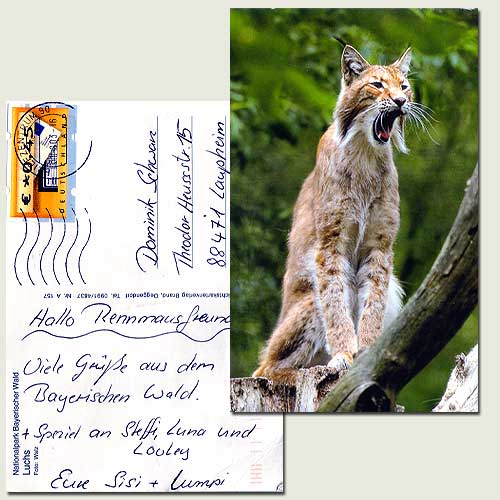 Hallo Rennmausfreund
Viele Grüße aus dem
Bayerischen Wald.
+ Speziel an Steffi, Luna und
Looley
Eure Sisi + Lumpi
Dominik Schwarz
Theodor Heussstr. 15
88471 Laupheim
€ *0,45
DEUTSCHLAND
ichtskartenverlag Brand, Deggendorf Tel. 0991/4837 Nr. A 157
Nationalpark Bayerischer Wald
Luchs
Foto: Walz